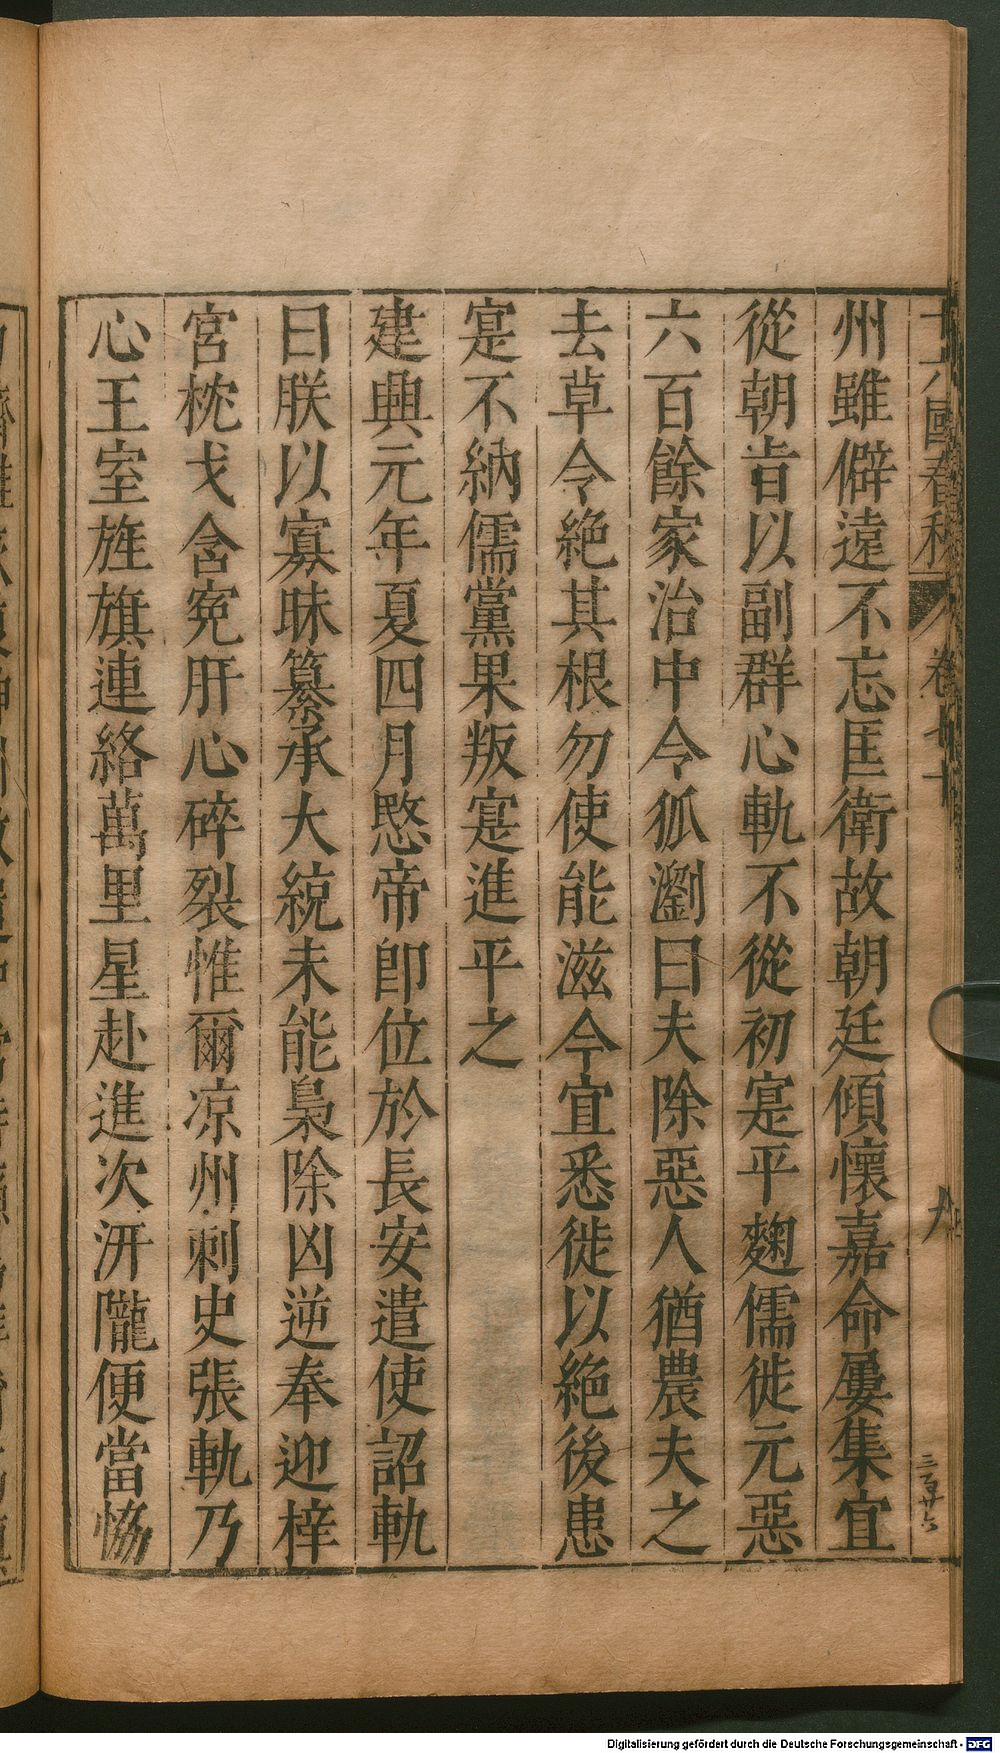 十六國春秋 卷七十 九
三百廿六
州雖僻遠不忘匡衛故朝廷傾懷嘉命屢集宜
從朝旨以副群心軌不從初寔平麴儒徙元惡
六百餘家治中令狐瀏曰夫除惡人猶農夫之
去草令絶其根勿使能滋今宜悉徙以絶後患
寔不納儒黨果叛寔進平之
建興元年夏四月愍帝卽位於長安遣使詔軌
曰朕以寡昧纂承大統未能梟除凶逆奉迎梓
宮枕戈含寃肝心碎裂惟爾凉州刺史張軌乃
心王室旌旗連絡萬里星赴進次汧隴便當恊
Digitalisierung gefördert durch die Deutsche Forschungsgemeinschaft - DFG